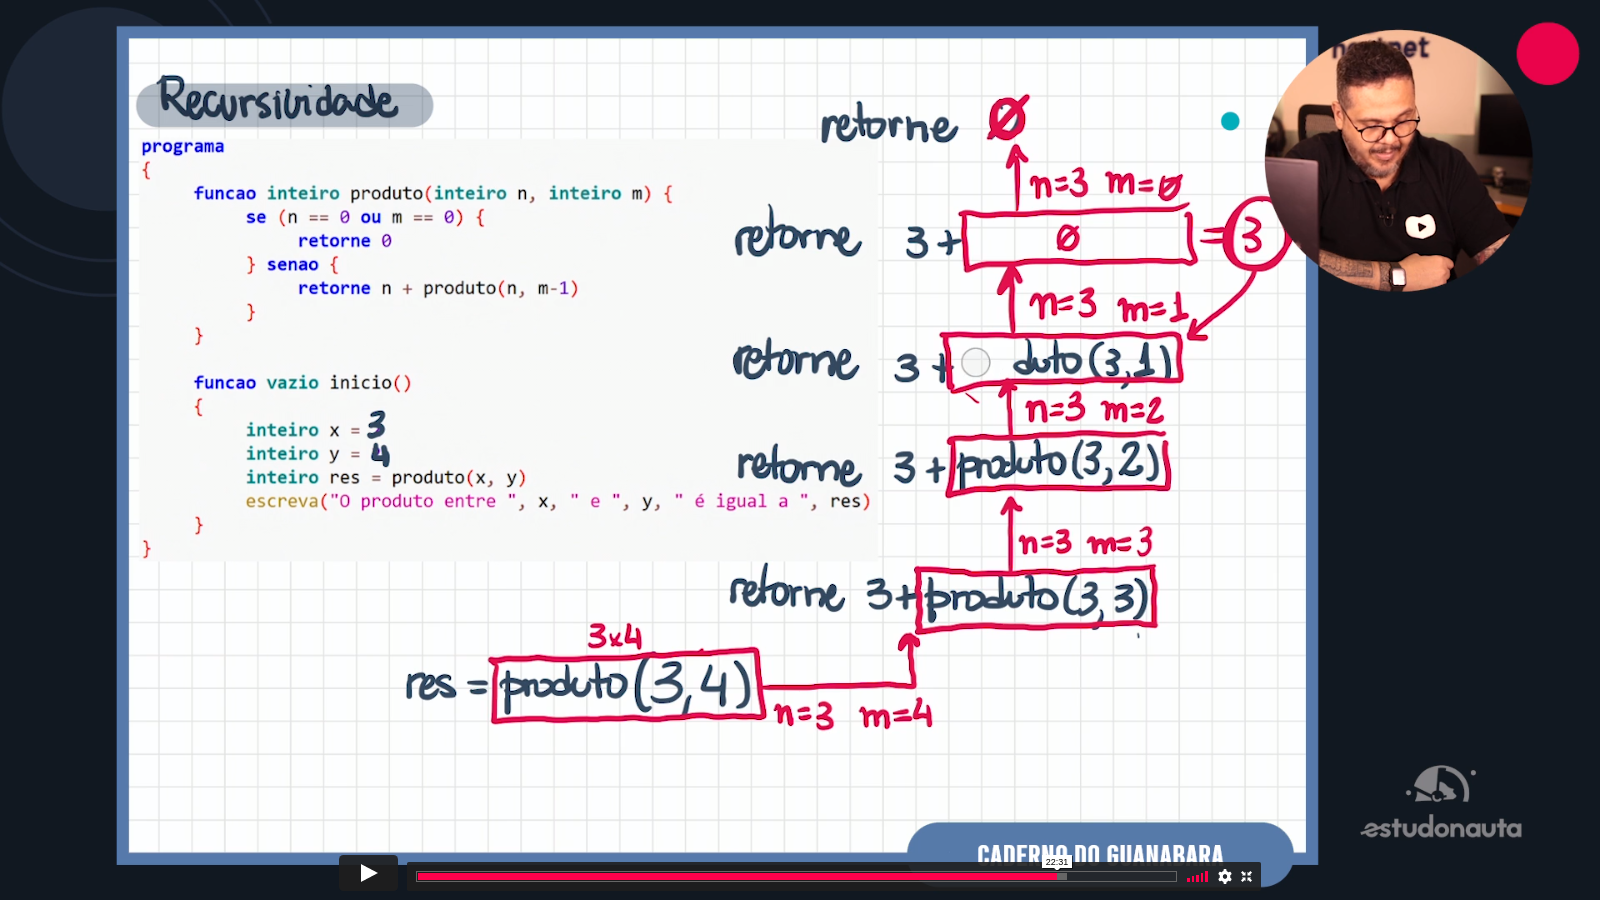 Recursividade
programa
{
funcao inteiro produto(inteiro n, inteiro m) {
se (n == 0 ou m == 0) {
retorne 0
} senao {
retorne n + produto(n, m-1)
}
}
funcao vazio inicio()
{
inteiro x = 3
inteiro y = 4
inteiro res = produto(x, y)
escreva("O produto entre ", x, " e ", y, " é igual a ", res)
}
}
retorne 0
n=3 m=0
retorne 3+ 0 =3
n=3 m=1
retorne 3+ duto(3,1)
n=3 m=2
retorne 3+produto(3,2)
n=3 m=3
retorne 3+produto(3,3)
3x4
res = produto(3,4)
n=3 m=4
estudonauta
CADERNO DO GUANABARA
22:31